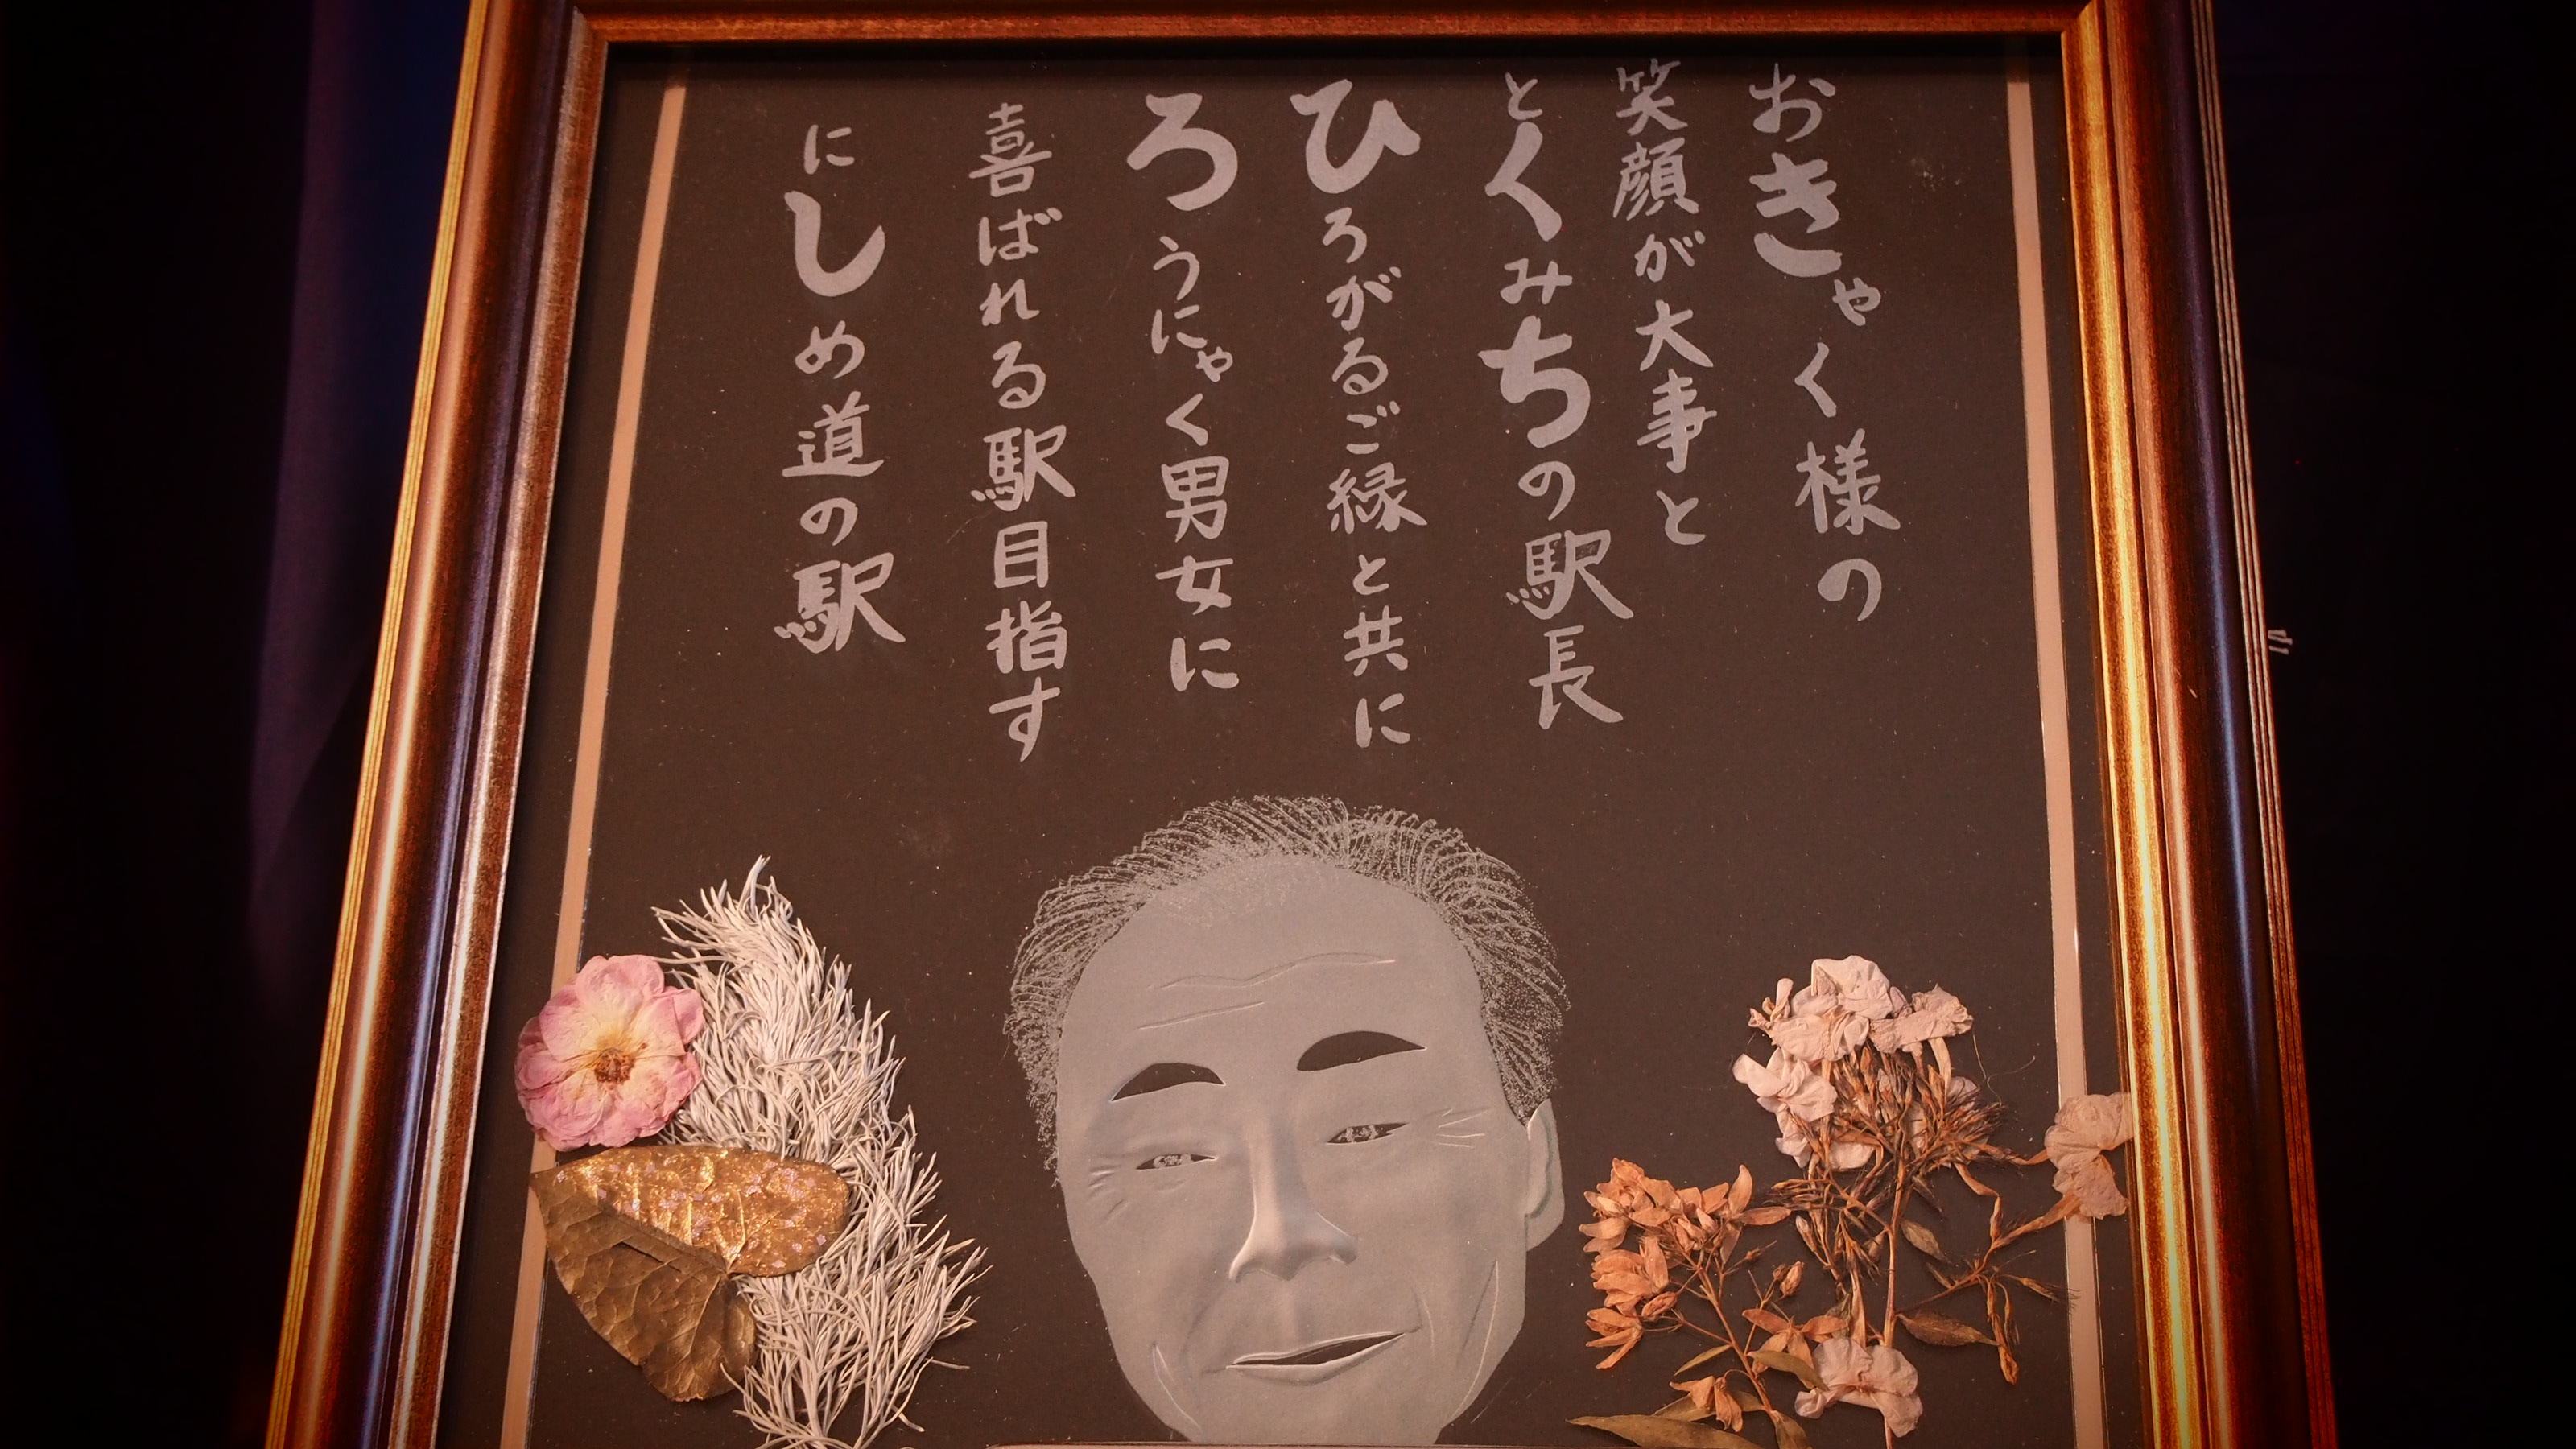 おきゃく様の
笑顔が大事と
とくみちの駅長
ひろがるご縁と共に
ろうにゃく男女に
喜ばれる駅目指す
にしめ道の駅